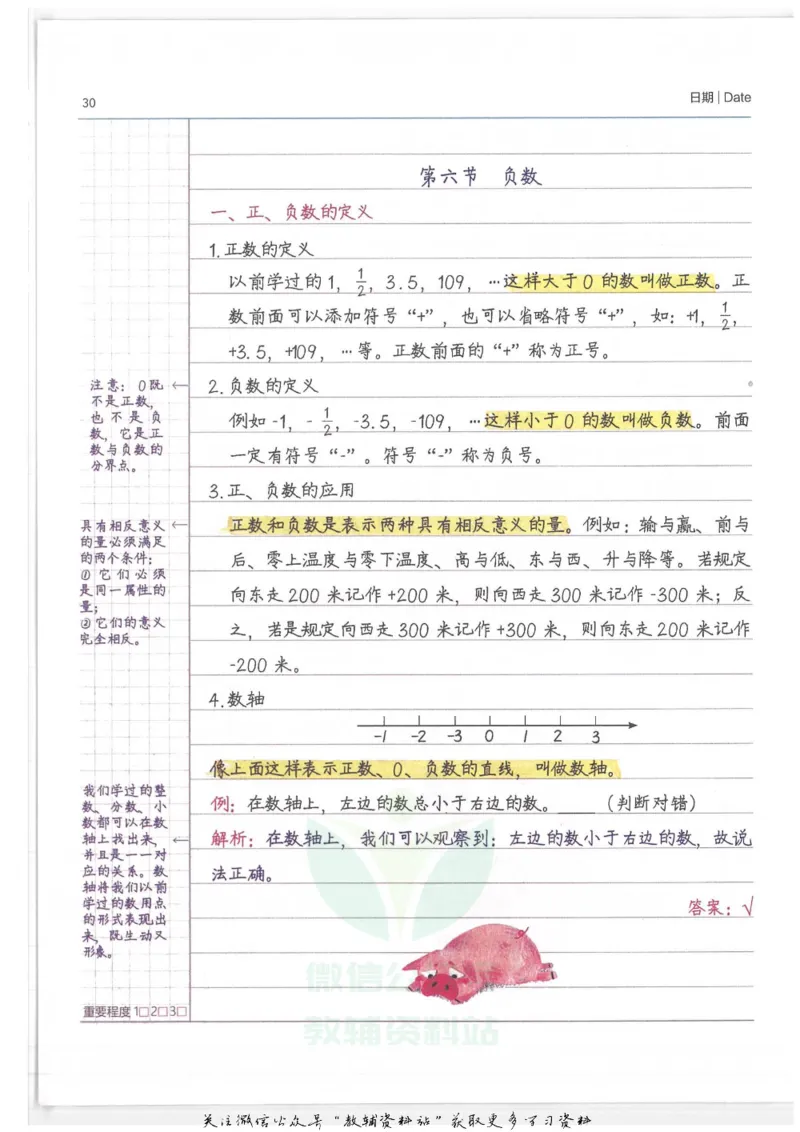 30
日期 | Date
第六节 负数
一、正、负数的定义
1.正数的定义
以前学过的1，1/2，3.5，109，…这样大于0的数叫做正数。正
数前面可以添加符号“+”，也可以省略符号“+”，如：+1，1/2，
+3.5，+109，…等。正数前面的“+”称为正号。
注意：0既
不是正数，
也不是负
数，它是正
数与负数的
分界点。
2.负数的定义
例如-1，-1/2，-3.5，-109，…这样小于0的数叫做负数。前面
一定有符号“-”。符号“-”称为负号。
3.正、负数的应用
具有相反意义
的量必须满足
的两个条件：
①它们必须
是同一属性的
量；
②它们的意义
完全相反。
正数和负数是表示两种具有相反意义的量。例如：输与赢、前与
后、零上温度与零下温度、高与低、东与西、升与降等。若规定
向东走200米记作+200米，则向西走300米记作-300米；反
之，若是规定向西走300米记作+300米，则向东走200米记作
-200米。
4.数轴
-1 -2 -3 0 1 2 3
像上面这样表示正数、0、负数的直线，叫做数轴。
我们学过的整
数、分数、小
数都可以在数
轴上找出来，
并且是一一对
应的关系。数
轴将我们以前
学过的数用点
的形式表现出
来，既生动又
形象。
例：在数轴上，左边的数总小于右边的数。____（判断对错）
解析：在数轴上，我们可以观察到：左边的数小于右边的数，故说
法正确。
答案：√
微信公众号
教辅资料站
重要程度 1□2□3□
关注微信公众号“教辅资料站”获取更多学习资料